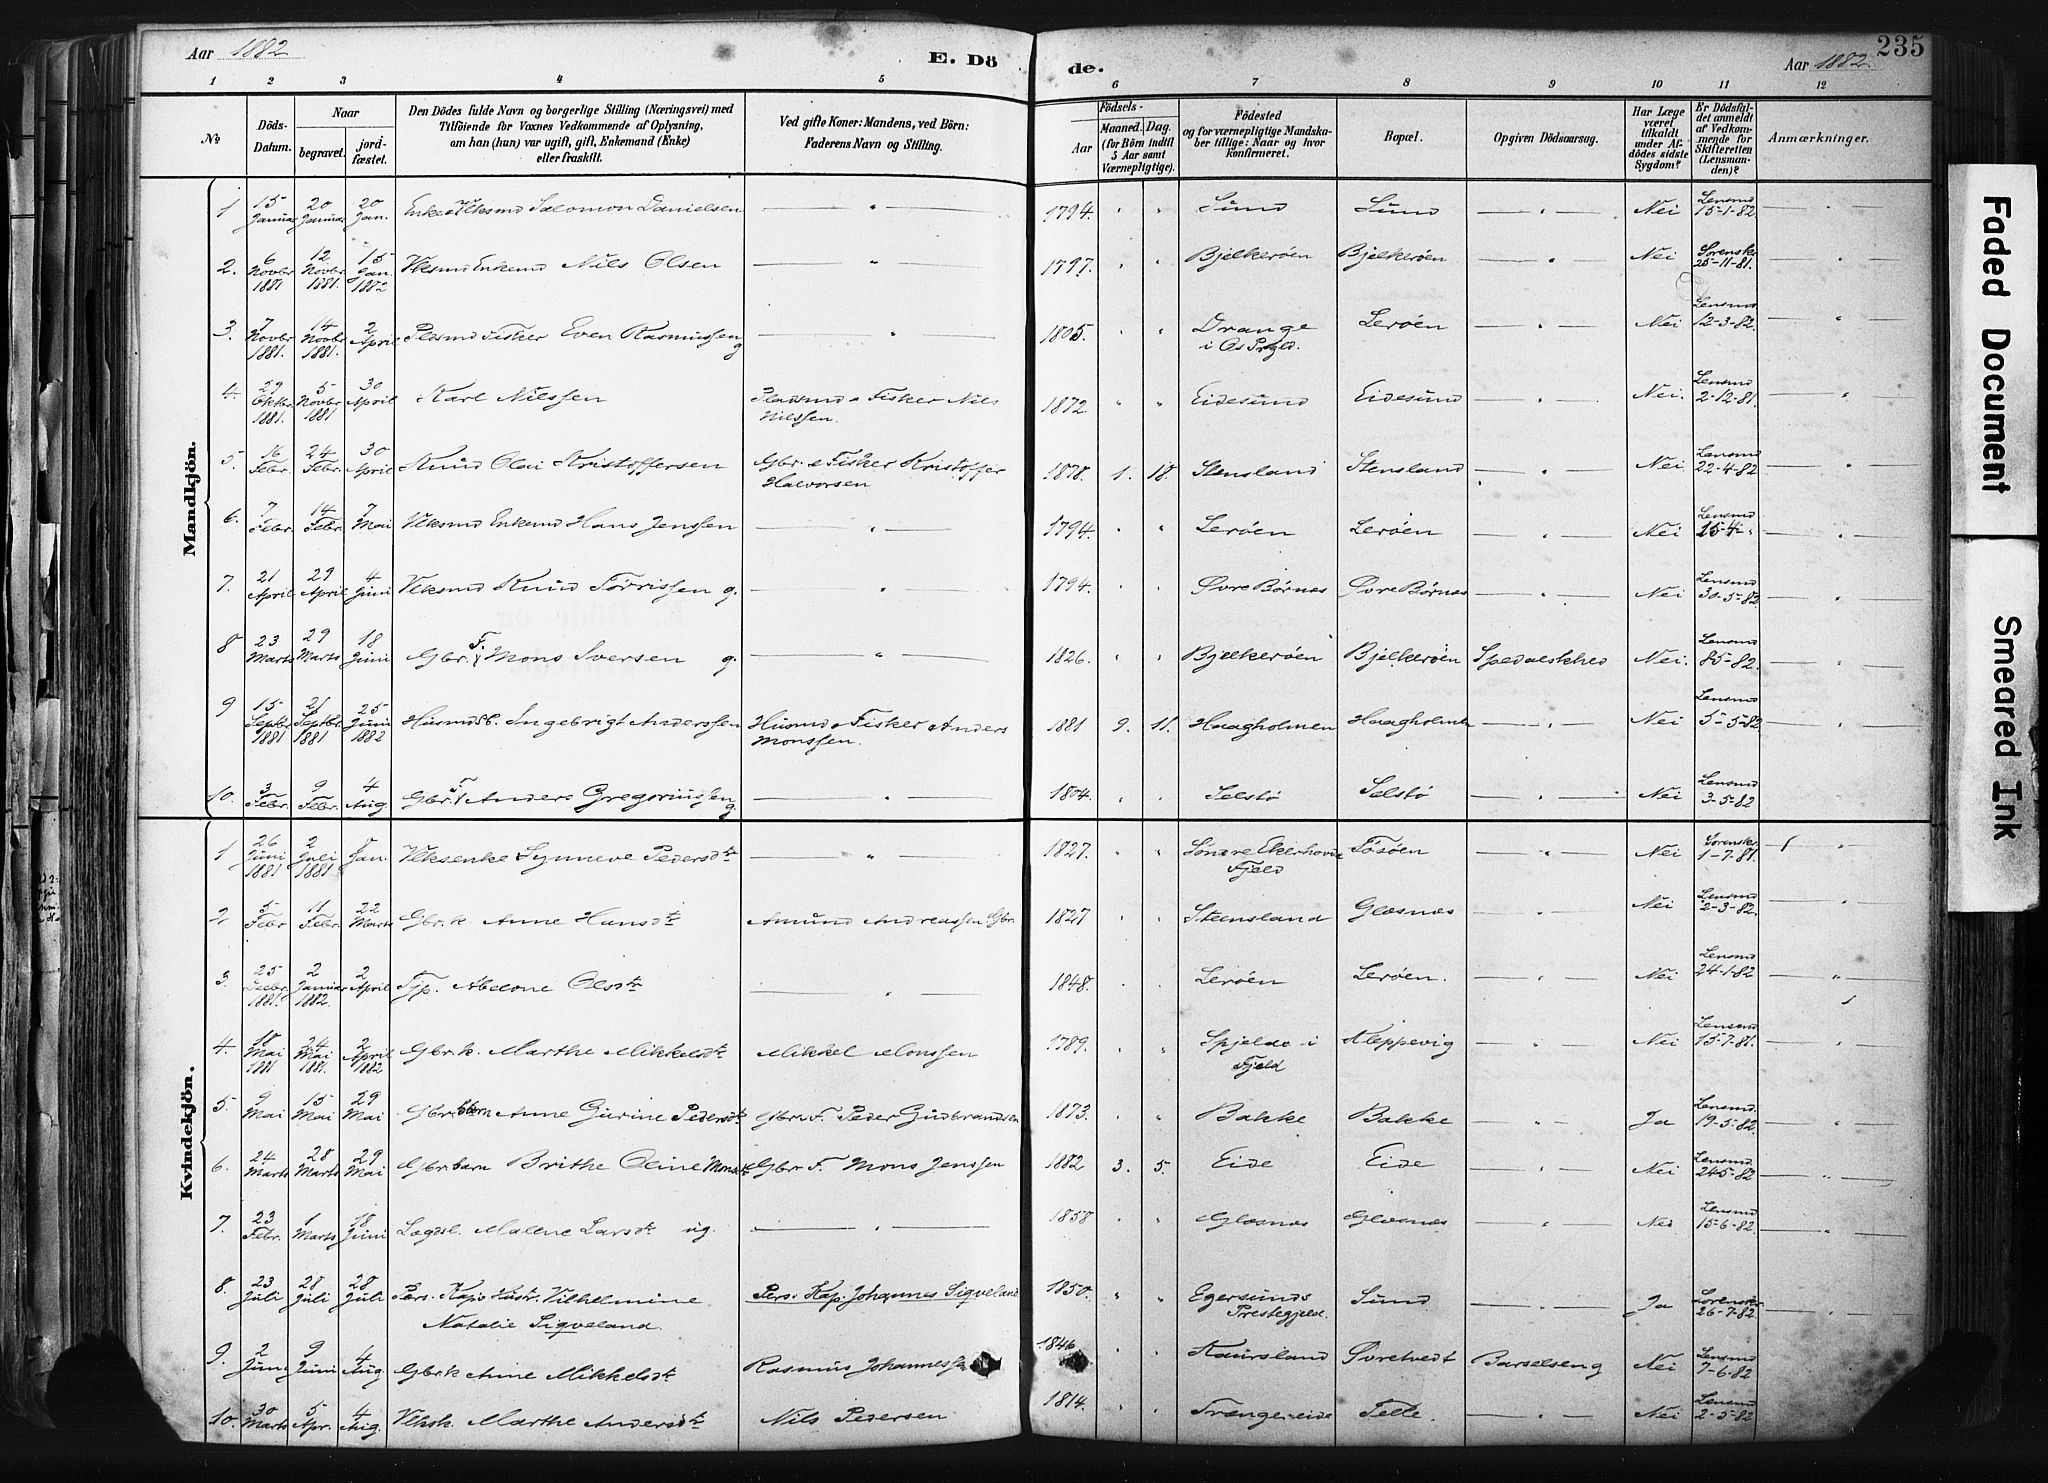 Aar 1882
E. Dö
de.
Aar 1882.
235
1 2 3 4 5 6 7 8 9 10 11 12
No.
Döds-Datum.
Naar
begravet.
jord-fæstet.
Den Dödes fulde Navn og borgerlige Stilling (Næringsvei) med
Tilföiende for Voxnes Vedkommende af Oplysning,
om han (hun) var ugift, gift, Enkemand (Enke)
eller fraskilt.
Ved gifte Koner: Mandens, ved Börn:
Faderens Navn og Stilling.
Födsels-
Aar
Maaned. Dag.
(for Börn indtil
5 Aar samt
Værnepligtige).
Födested
og for værnepligtige Mandska-
ber tillige: Naar og hvor
konfirmeret.
Bopæl.
Opgiven Dödsaarsag.
Har Læge
været
tilkaldt
under Af-
dödes sidste
Sygdom?
Er Dödsfal-
det anmeldt
af Vedkom-
mende for
Skifteretten
(Lensman-
den)?
Anmærkninger.
Mandkjön.
1 15 Januar 20 Januar 20 Jan. Salomon Danielsen — " — 1794. " " Sund Sund — " — Nei Lensmd 15-1-82 — " —
2. 6 Novbr 1881 12 Novbr 1881. 15 Jan. 1882 Vlksmd Enkemd Nils Olsen — " — 1797. " " Bjelkeröen Bjelkeröen — " — Nei Sorenskr 25-11-81. "
3. 7 Novbr 1881. 14 Novbr 1881. 2 April Plsmd Fisker Even Rasmussen g — " — 1805. " " Drange i Os Prgld. Leröen — " — Nei Lensmd 12-3-82. "
4. 29 Oktbr 1881. 5 Novbr 1881 30 April Karl Nilssen Pladsmd o Fisker Nils Nilssen. 1872. " " Eidesund Eidesund — " — Nei. Lensmd 2-12-81. "
5. 16 Febr. 24 Febr. 30 April Knud Olai Kristoffersen Gbr. o Fisker Kristoffer Halvorsen 1878. 1. 18. Stensland Stensland — " — Nei Lensmd 22-4-82 "
6. 7 Febr. 14 Febr. 7 Mai Vlksmd Enkemd Hans Jenssen — " — 1794. " " Leröen Leröen — " — Nei Lensmd 15-4- " "
7. 21 April 29 April 4 Juni Vlksmd Knud Törrissen g. — " — 1794. " " Øvre Börnæs Øvre Börnæs — " — Nei Lensmd 30-5-82 "
8 23 Marts 29 Marts 18 Juni Gbr. F. Mons Iversen g. — " — 1826. " " Bjelkeröen Bjelkeröen Spedalskhed Nei. Lensmd 8-5-82. "
9 15 Septbr 1881 21 Septbr. 1881 25 Juni 1882 Husmdsb. Ingebrigt Anderssen Husmd o Fisker Anders Monssen. 1881 9. 11. Haagholmen Haagholmen — " — Nei Lensmd 5-5-82 "
10. 3 Febr. 9 Febr. 4 Aug. Gbr. F. Anders Gregoriussen g — " — 1804. " " Selstö Selstö — " — Nei Lensmd 3-5-82
Kvindekjön.
1 26 Juni 1881 2 Juli 1881 Jan. Vlksenke Synneve Pedersdtr — " — 1827. " " Söndre Ekerhovd Fjeld Tösöen — " — Nei Sorenskr. 1-7-81. "
2 5 Febr 11 Febr. 22 Marts Gbr.k. Anne Hansdtr Amund Andreassen Gbr. 1827 " " Steensland Glesnæs — " — Nei Lensmd 2-3-82. "
3. 25 1881. 2 Januar 1882. 2 April Tjp. Abelone Olsdtr — " — 1848. " " Leröen Leröen. — " — Nei Lensmd 24-1-82 "
4. 18 Mai 1881 24 Mai 1881. 2 April 1882 Gbr.k. Marthe Mikkelsdtr Mikkel Monssen 1789. " " Spjelde i Fjeld Kleppevig — " — Nei Lensmd 15-7-81. "
5. 9 Mai 15 Mai 29 Mai Gbr.barn Anne Gurine Pedersdtr Gbr. F. Peder Gudbrandsen 1873. " Bakke Bakke — " — Ja Lensmd. 19-5-82. "
6. 24 Marts 28 Marts 29 Mai Gbr.barn Brithe Oline Monsdtr Gbr F. Mons Jenssen 1882 3. 5. Eide Eide — " — Nei Lensmd 24-5-82 "
7. 23 Febr. 1 Marts 18 Juni Lægdsl. Malene Larsdtr ug. — " — 1858 " " Glesnæs Glesnæs — " — Nei Lensmd 15-6-82. "
8. 23 Juli 28 Juli 28 Juli Pers. Kaps. Hustr. Vilhelmine Natalie Siqveland. Pers. Kap. Johannes Siqveland 1850. " " Egersunds Prestegjeld. Sund — " — Ja Sorenskr. 26-7-82. "
9. 2 Juni 9 Juni 4 Aug. Gbr.k Anne Mikkelsdtr Rasmus Johannessen 1846 " " Kaursland Øvretvedt Barselseng Nei Lensmd 7-6-82 "
10. 30 Marts 5 Apr. 4 Aug. Vlksk. Marthe Andersdtr Nils Pedersen 1814. " " Trangereide Telle. — " — Nei Lensmd 2-5-82 "
Faded Document
Smeared Ink